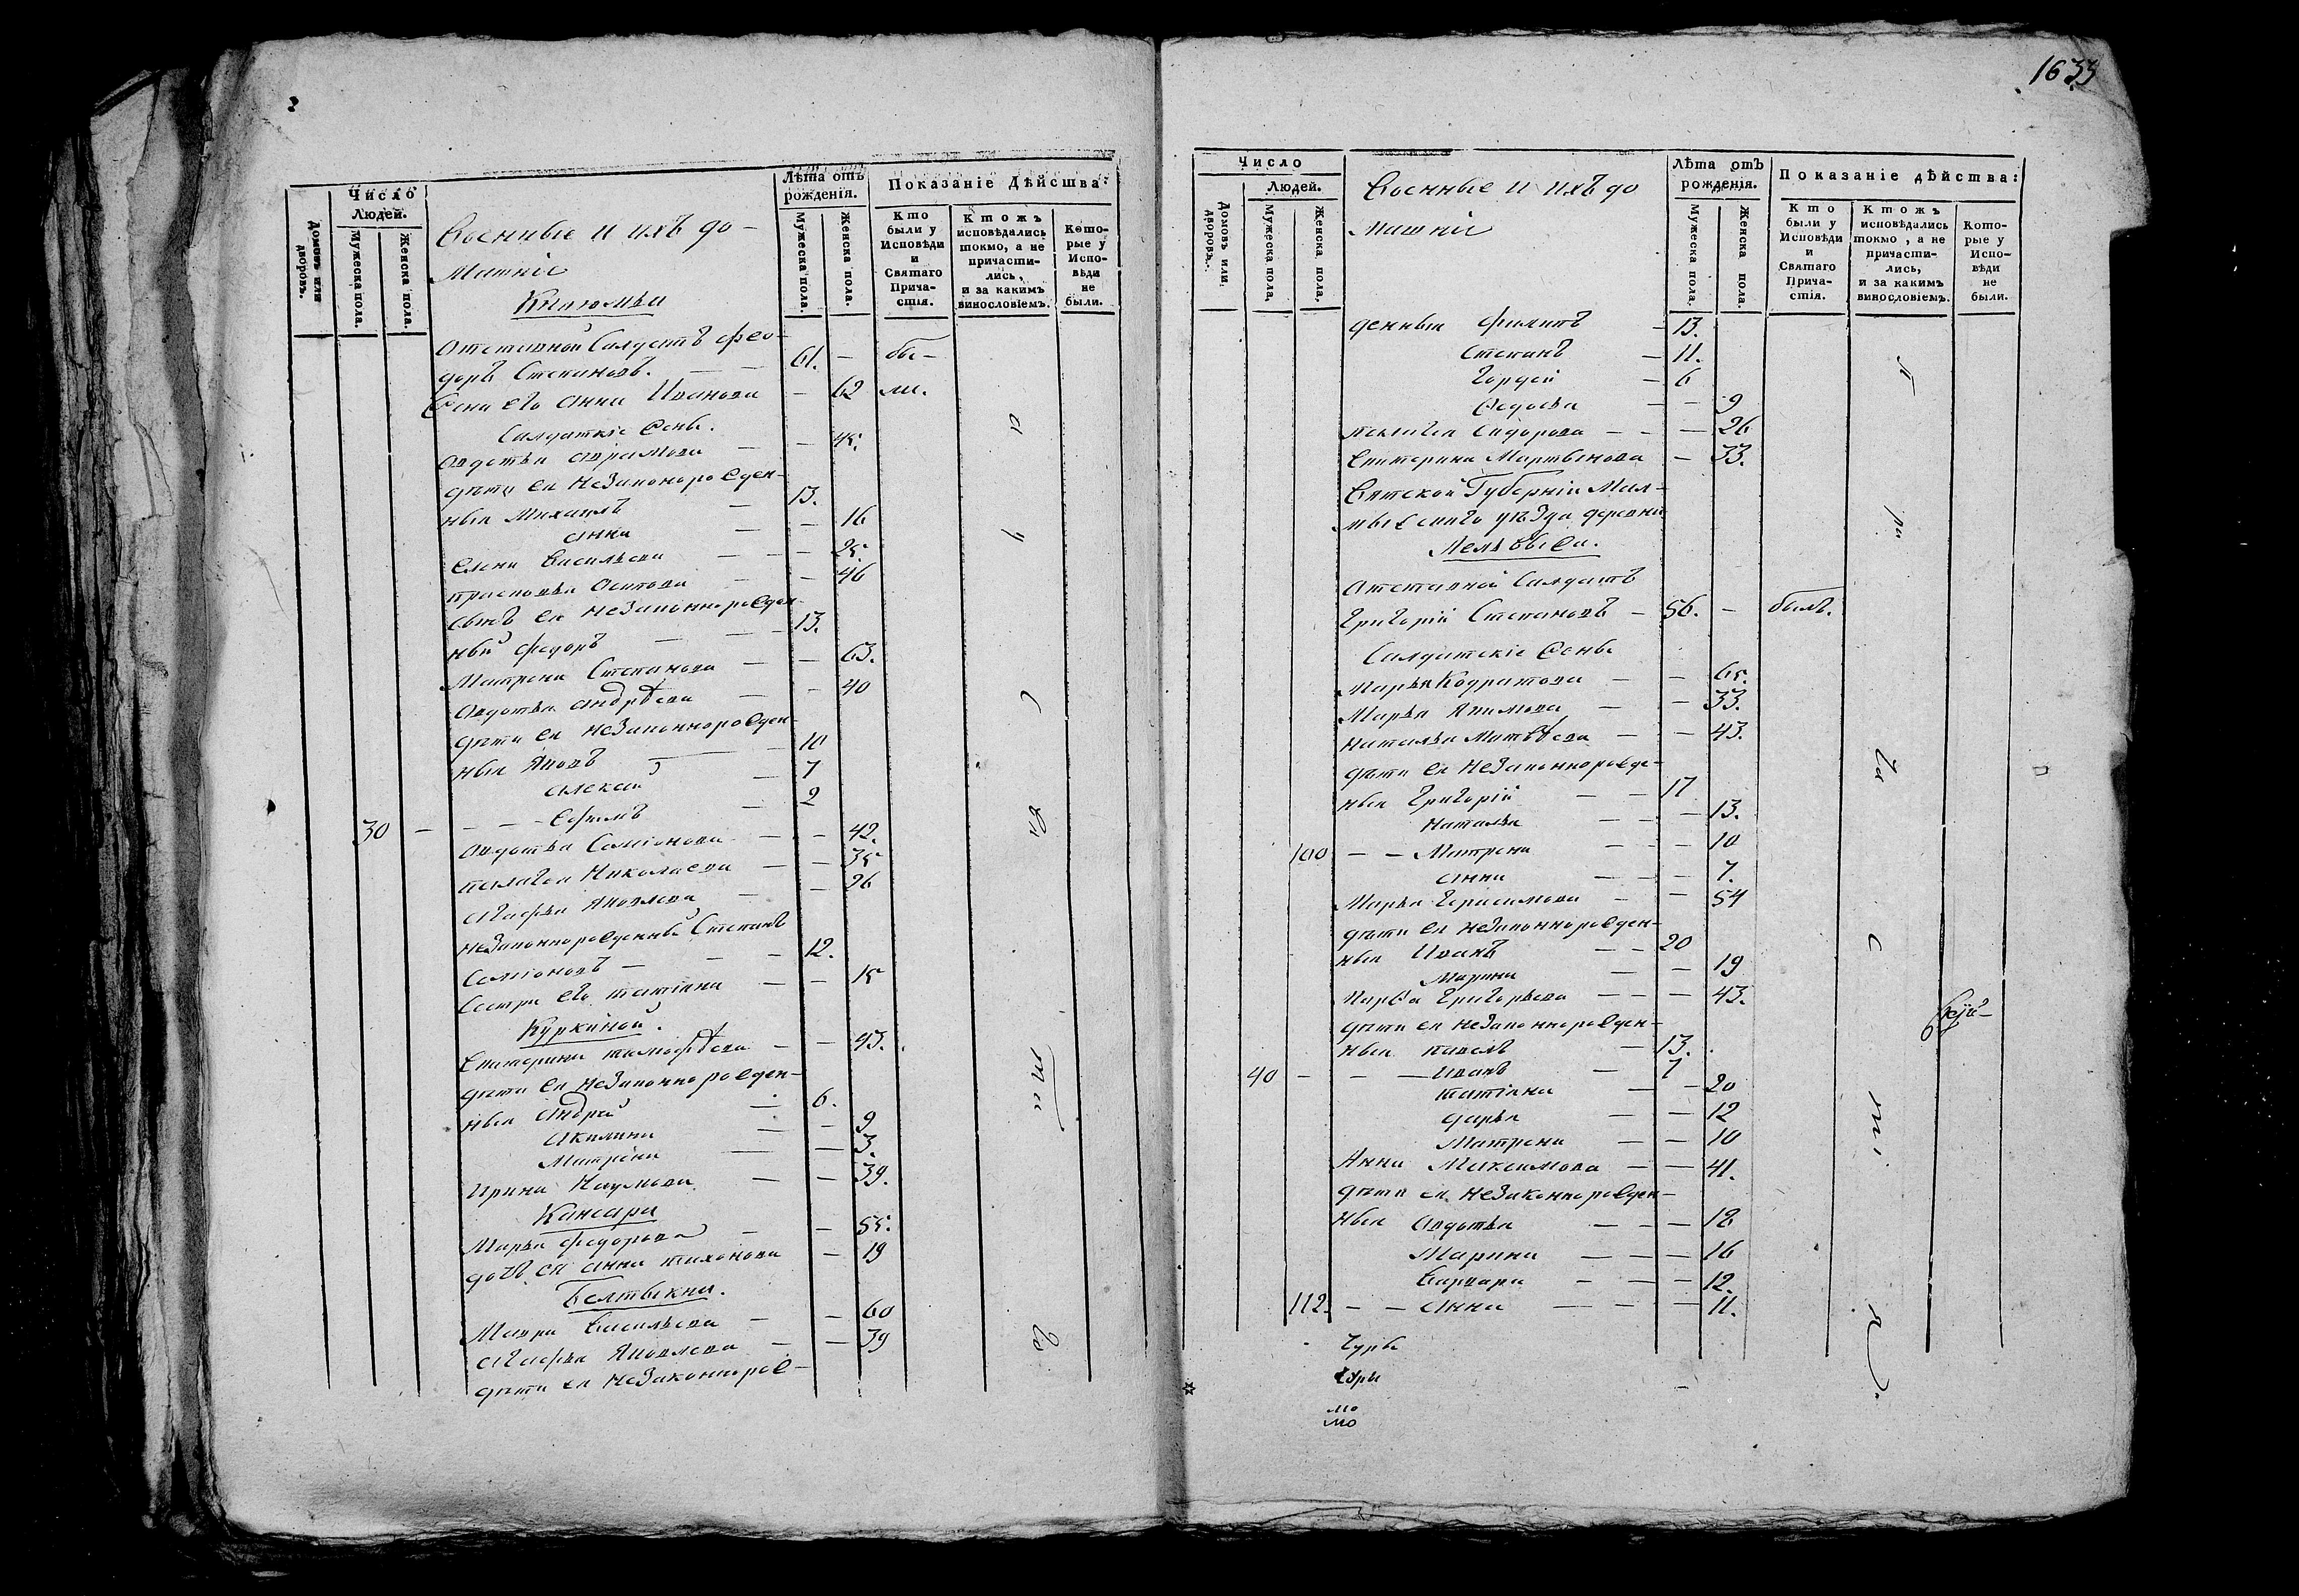 Число
Людей.
Домовъ или дворовъ.
Мужеска пола.
Женска пола.
Военные и ихъ до-
машніе
Лѣта отъ
рожденія.
Мужеска пола.
Женска пола.
Показаніе дѣйства:
Кто были у Исповѣди и Святаго Причастія.
Ктожъ исповѣдались токмо, а не причастились, и за какимъ винословіемъ.
Которые у Исповѣди не были.
Отставной Салдатъ Фео-
доръ Степановъ. — 61. — бы-
Жена его Анна Иванова — 62 ли.
Салдатскіе жены.
Авдотья — 45.
дѣти ея незаконорожден-
ныя Михаилъ — 13.
Анна — 16
Елена Васильева — 25.
Прасковья Осипова — 46
сынъ ея незаконнорожден-
ный Федоръ — 13.
Матрена Степанова — 63.
Авдотья Андрѣева — 40
дѣти ея незаконнорожден-
ныя Яковъ — 10
Алексѣй — 7
30 — — Ефимъ — 2
Авдотья Семіонова — 42.
Палагея Николаева — 35
Агафья Яковлева — 26
незаконнорожденный Степанъ
Семіоновъ — 12.
Сестра его Татіана — 15
Куркиной.
Екатерина Тимофѣева — 43.
дѣти ея незаконнорожден-
ныя Андрей — 6.
Акилина — 9
Матрена — 3.
Ирина Наумова — 39.
Кансара
Марья Федорова — 55.
дочь ея Анна Тихонова — 19
Мавра Васильева — 60
Агафья Яковлева — 39
дѣти ея незаконнорож-
1633
Число
Людей.
Домовъ или дворовъ.
Мужеска пола,
Женска пола,
Военные и ихъ до
машніи
Лѣта отъ
рожденія.
Мужеска пола.
Женска пола.
Показаніе дѣйства:
Кто были у Исповѣди и Святаго Причастія.
Ктожъ исповѣдались токмо, а не причастились, и за какимъ винословіемъ.
Которые у Исповѣди не были.
денныя Филипъ — 13.
Степанъ — 11.
Гордей — 6
Федосья — 9
Сидорова — 26
Екатерина Мартынова — 33.
Вятской Губерніи Мал-
мыжскаго уѣзда деревни
Отставной Салдатъ
Григорій Степановъ — 56. — былъ.
Салдатскіе жены
Марья Кодратова — 65.
Марья Якимова — 33.
Наталья Матвѣева — 43.
дѣти ея незаконнорожде-
ныя Григорій — 17
Наталья — 13.
100 — — Матрена — 10
Анна — 7.
Марья Герасимова — 54
дѣти ея незаконнорожден-
ныя Иванъ — 20
Марина — 19
Марфа Григорьева — 43.
дѣти ея незаконнорожден-
ныя Павелъ — 13.
40 — — Иванъ — 7
Татіана — 20
Дарья — 12
Матрена — 10
Анна Максимова — 41.
дѣти ея незаконнорожден-
ныя Авдотья — 18
Марина — 16
Варвара — 12.
112. — — Анна — 11.